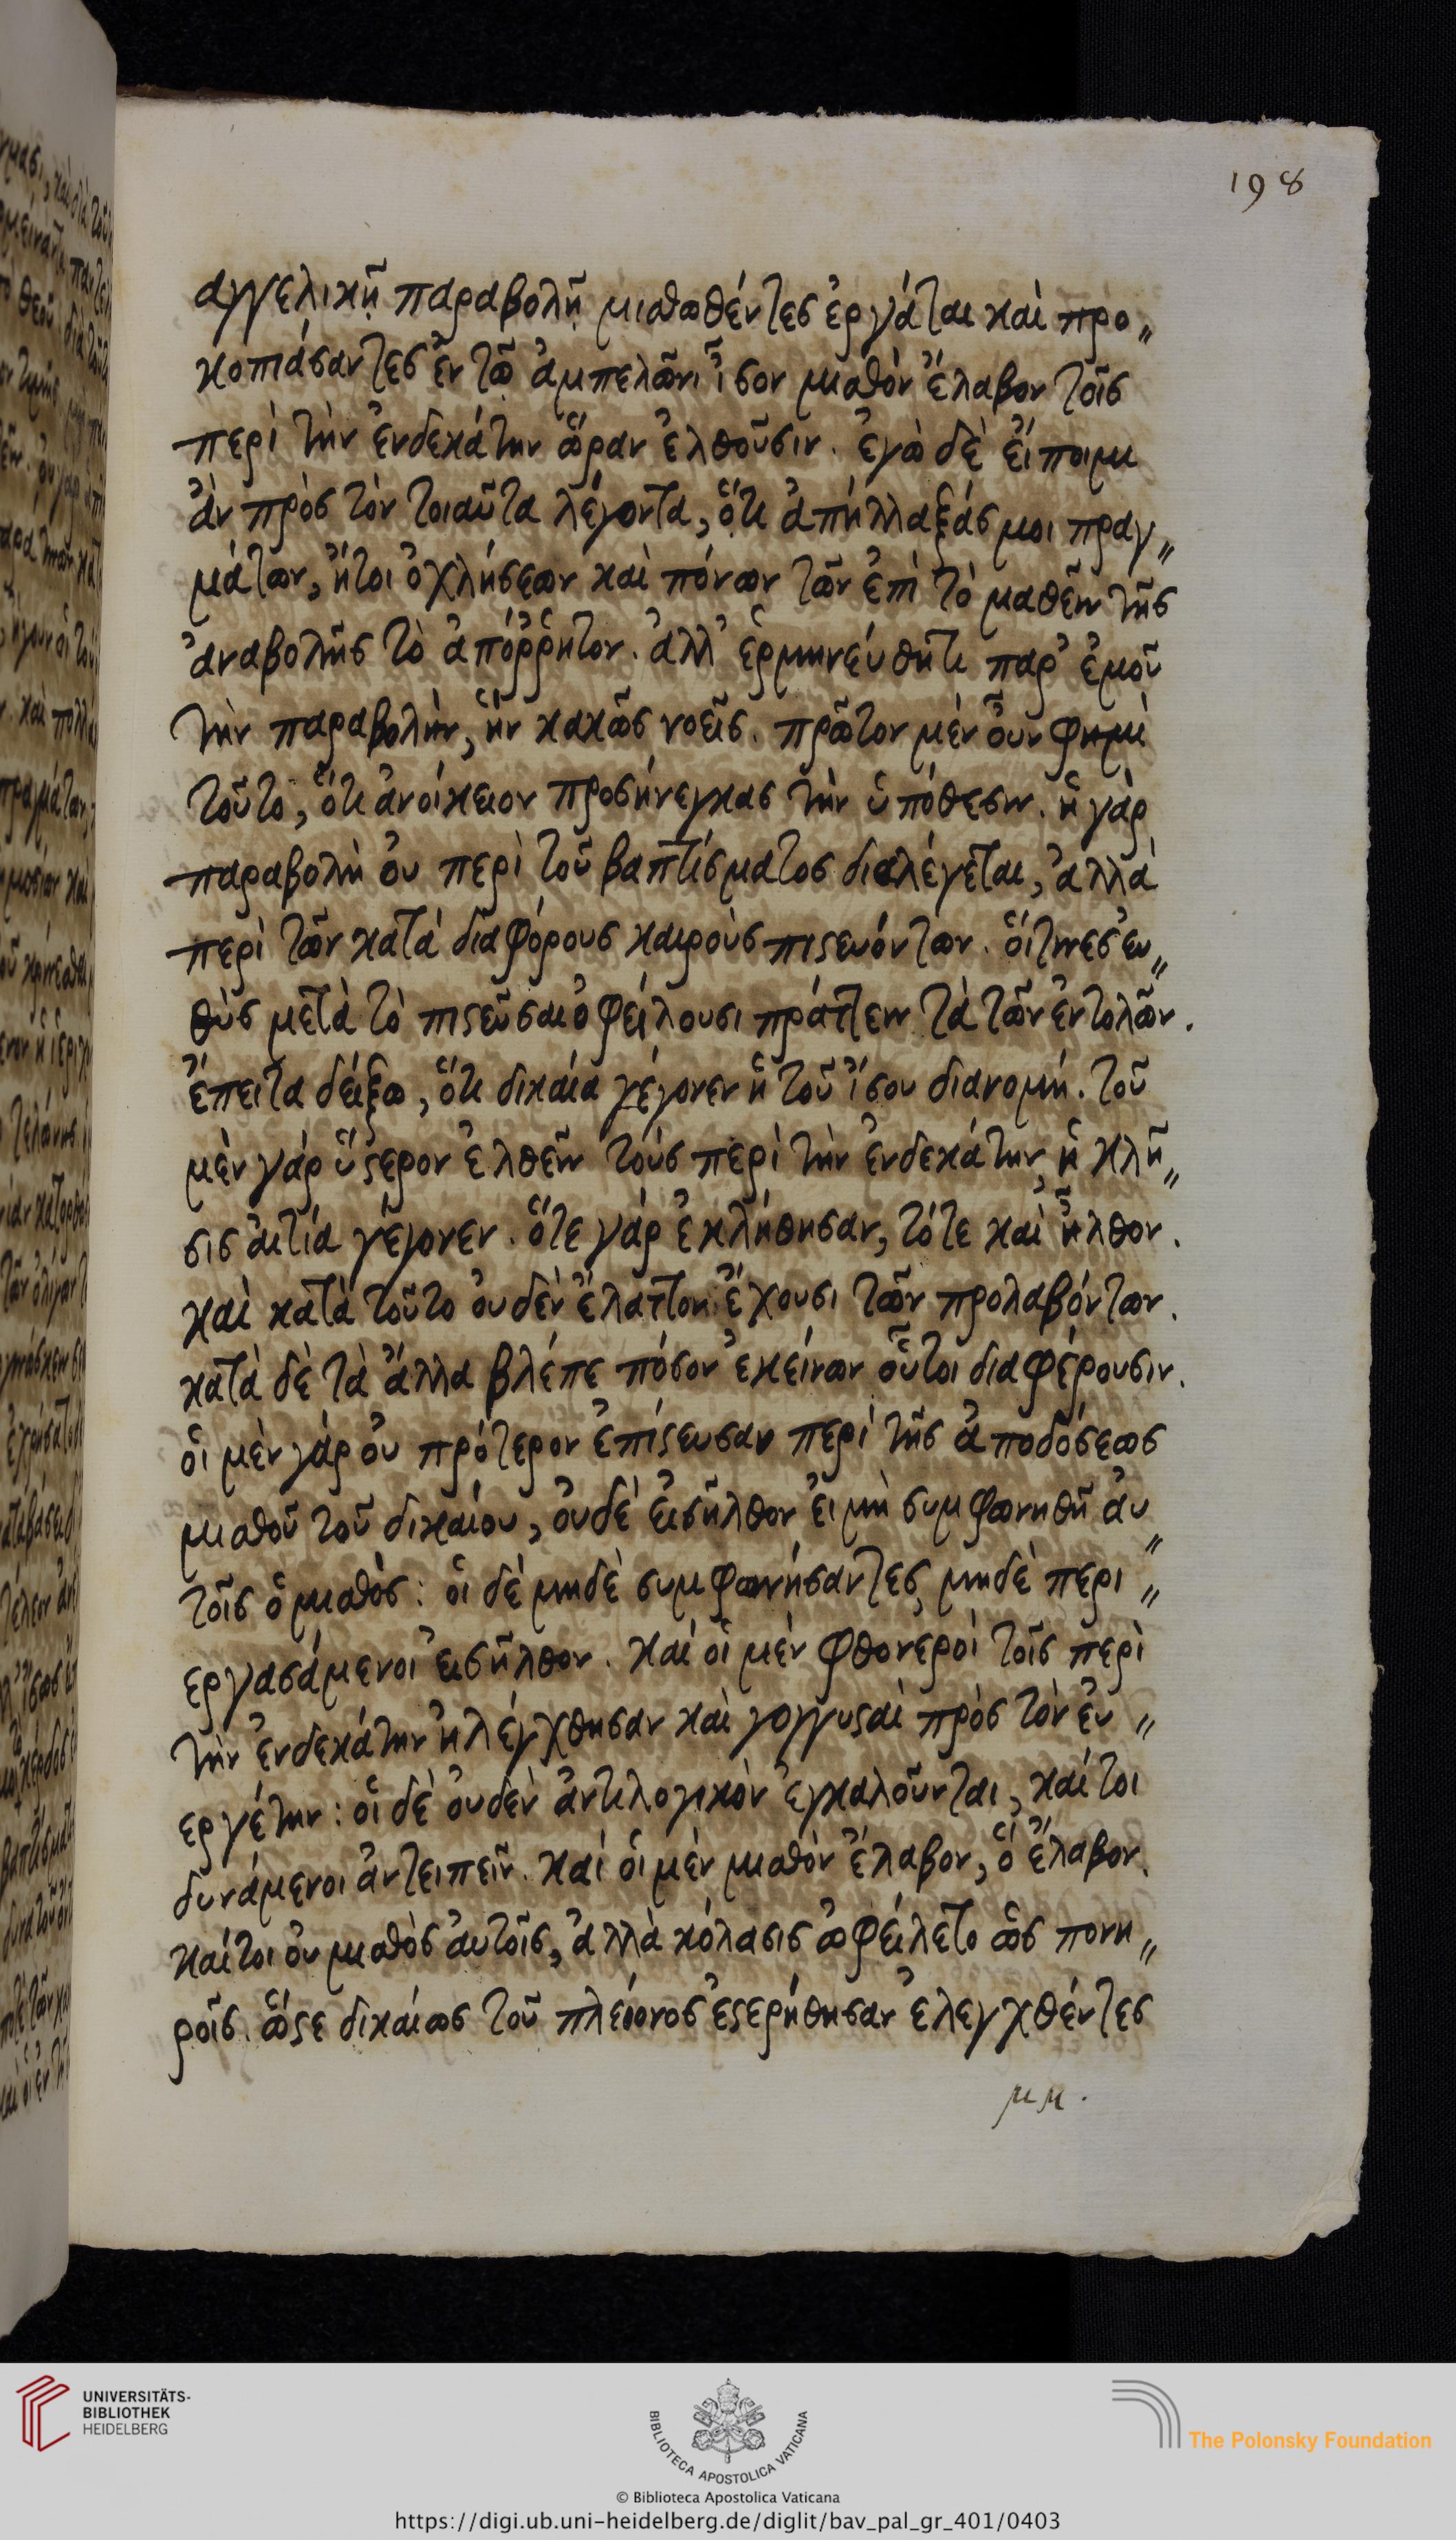 198
αγγελικῇ παραβολῇ μισθωθέντες ἐργάται καὶ προ„
κοπιάσαντες ἐν τῷ ἀμπελῶνι ἶσον μισθὸν ἔλαβον τοῖς
περὶ τὴν ἐνδεκάτην ὥραν ἐλθοῦσιν. ἐγὼ δὲ εἴποιμι
ἂν πρὸς τὸν τοιαῦτα λέγοντα, ὅτι ἀπήλλαξάς μοι πραγ„
μάτων, ἤτοι ὀχλήσεων καὶ πόνων τῶν ἐπὶ τὸ μαθεῖν τῆς
ἀναβολῆς τὸ ἀπόῤῥητον. ἀλλ' ἑρμηνεύθητι παρ' ἐμοῦ
τὴν παραβολὴν, ἣν κακῶς νοεῖς. πρῶτον μὲν οὖν φημὶ
τοῦτο, ὅτι ἀνοίκειον προσήνεγκας τὴν ὑπόθεσιν. ἡ γὰρ
παραβολὴ οὐ περὶ τοῦ βαπτίσματος διαλέγεται, ἀλλὰ
περὶ τῶν κατὰ διαφόρους καιροὺς πιϛευόντων. οἵτινες ευ„
θὺς μετὰ τὸ πιϛεῦσαι ὀφείλουσι πράττειν τὰ τῶν ἐντολῶν.
ἔπειτα δείξω, ὅτι δικαία γέγονεν ἡ τοῦ ἴσου διανομή. τοῦ
μὲν γὰρ ὕϛερον ἐλθεῖν τοὺς περὶ τὴν ἐνδεκάτην, ἡ κλῆ„
σις αἰτία γέγονεν. ὅτε γὰρ ἐκλήθησαν, τότε καὶ ἦλθον.
καὶ κατὰ τοῦτο οὐδὲν ἔλαττον ἔχουσι τῶν προλαβόντων.
κατὰ δὲ τὰ ἄλλα βλέπε πόσον ἐκείνων οὗτοι διαφέρουσιν.
οἱ μὲν γὰρ οὐ πρότερον ἐπίϛευσαν περὶ τῆς ἀποδόσεως
μισθοῦ τοῦ δικαίου, οὐδὲ εἰσῆλθον εἰ μὴ συμφωνηθῇ αὐ„
τοῖς ὁ μισθός: οἱ δὲ μηδὲ συμφωνήσαντες, μηδὲ περι„
εργασάμενοι εἰσῆλθον. καὶ οἱ μὲν φθονεροὶ τοῖς περὶ
τὴν ἐνδεκάτην ἠλέγχθησαν καὶ γογγυϛαὶ πρὸς τὸν εὐ„
εργέτην: οἱ δὲ οὐδὲν ἀντιλογικὸν ἐγκαλοῦνται, καίτοι
δυνάμενοι ἀντειπεῖν. καὶ οἱ μὲν μισθὸν ἔλαβον, ὃ ἔλαβον.
καίτοι οὐ μισθὸς αὐτοῖς, ἀλλὰ κόλασις ὠφείλετο ὡς πονη„
ροῖς. ὥϛε δικαίως τοῦ πλείονος ἐϛερήθησαν ἐλεγχθέντες
UNIVERSITÄTS-
BIBLIOTHEK
HEIDELBERG
BIBLIOTECA APOSTOLICA VATICANA
The Polonsky Foundation
© Biblioteca Apostolica Vaticana
https://digi.ub.uni-heidelberg.de/diglit/bav_pal_gr_401/0403